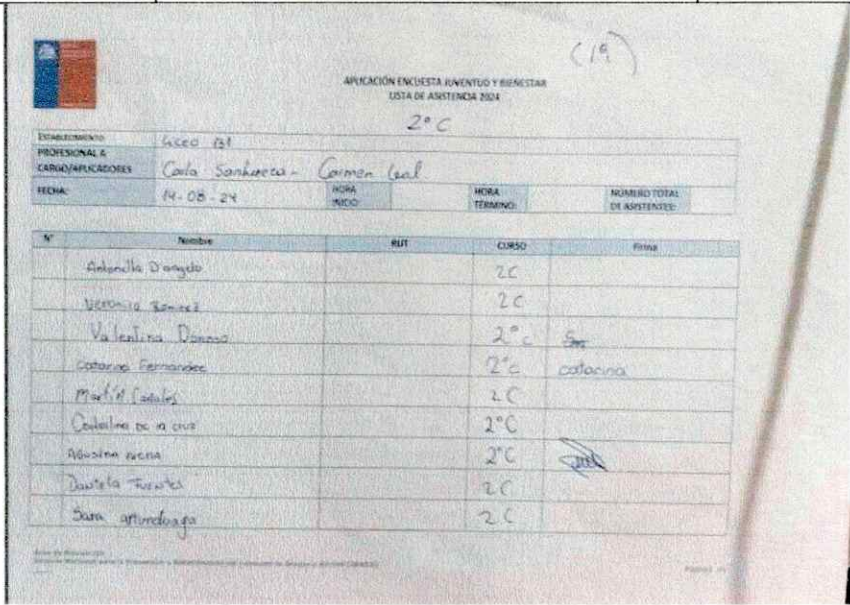 (19)
APLICACIÓN ENCUESTA JUVENTUD Y BIENESTAR
LISTA DE ASISTENCIA 2024
2° C
ESTABLECIMIENTO Liceo B1
PROFESIONAL A CARGO/APLICADORES Carla Sanhueza - Carmen Leal
FECHA: 14-08-24 HORA INICIO: HORA TÉRMINO: NÚMERO TOTAL DE ASISTENTES:
N° Nombre RUT CURSO Firma
Antonella D'angelo 2C
Veronica Ramirez 2C
Valentina Donoso 2°C
catarina Fernandez 2°C catarina
Martín Canales 2C
Catalina De la cruz 2°C
Agustina 2°C
Daniela Fuentes 2C
Sara artunduaga 2C